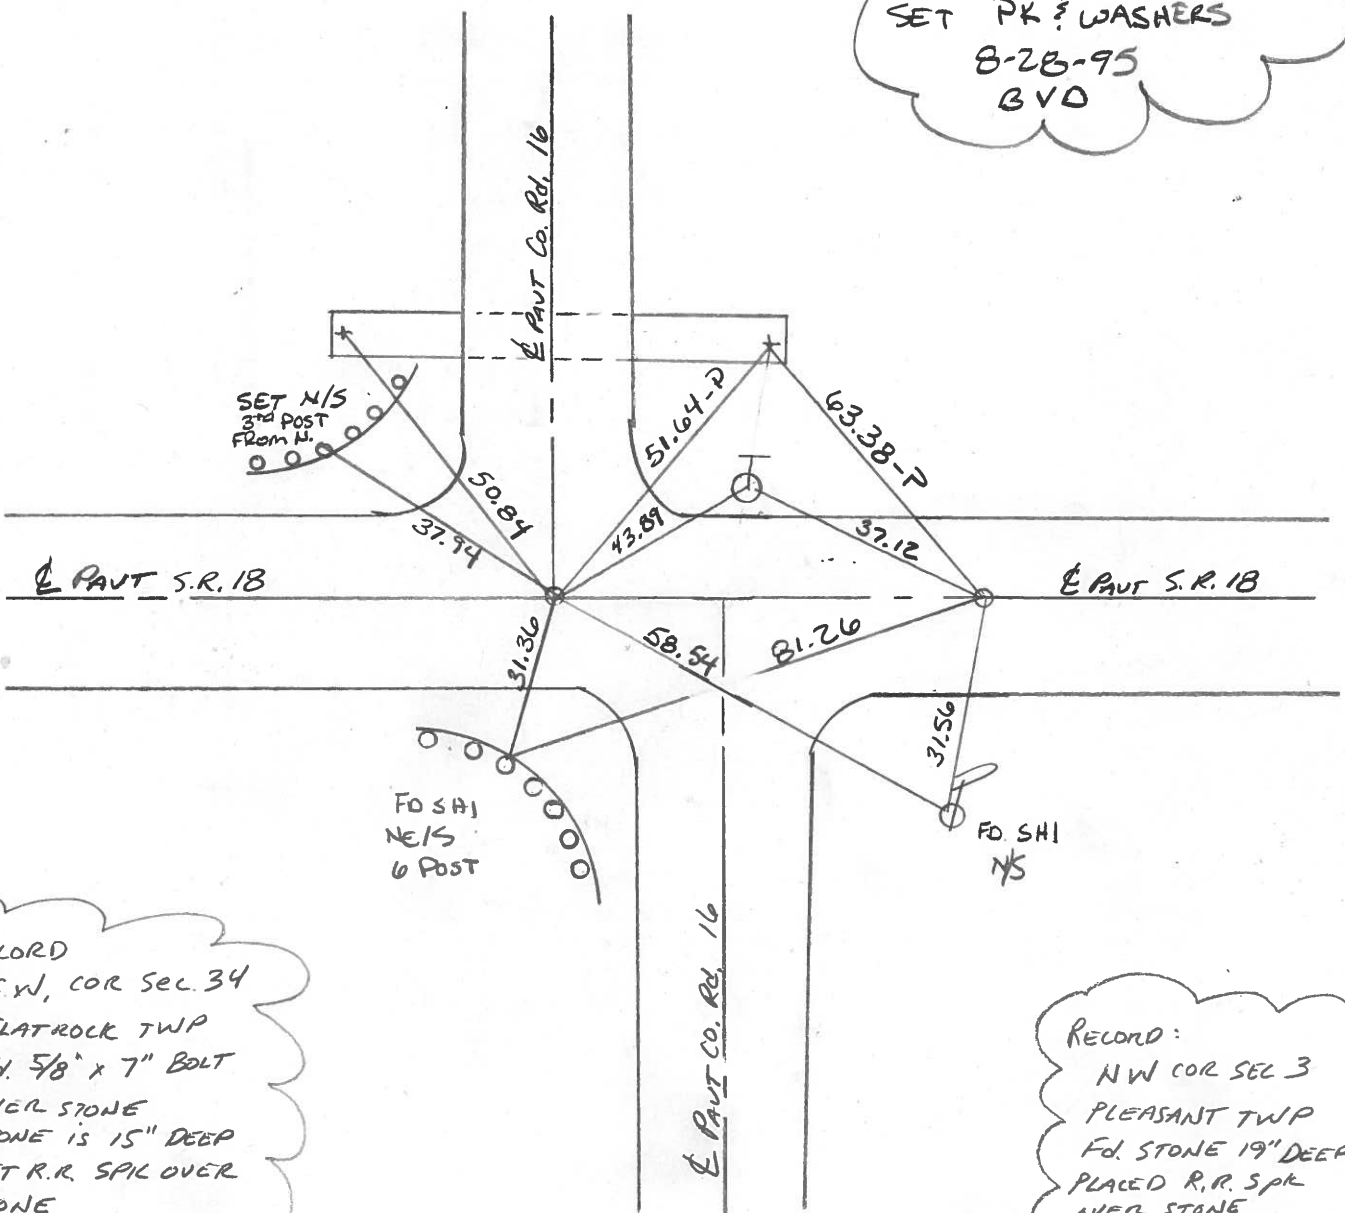 SET PK & WASHERS
8-28-95
BVD
⅊ PAVT Co. Rd. 16
SET N/S
3rd POST
FROM N.
51.64-P
63.38-P
50.84
37.94
43.89
37.12
℄ PAVT S.R. 18
℄ PAVT S.R. 18
31.36
58.54
81.26
31.56
FD SHI
NE/S
6 POST
FD. SHI
N/S
℄ PAVT CO. Rd. 16
CORD
S.W, COR SEC. 34
FLATROCK TWP
d. 5/8" x 7" BOLT
VER STONE
ONE IS 15" DEEP
T R.R. SPK OVER
ONE
RECORD:
NW COR SEC 3
PLEASANT TWP
Fd. STONE 19" DEEP
PLACED R.R. SPK
OVER STONE